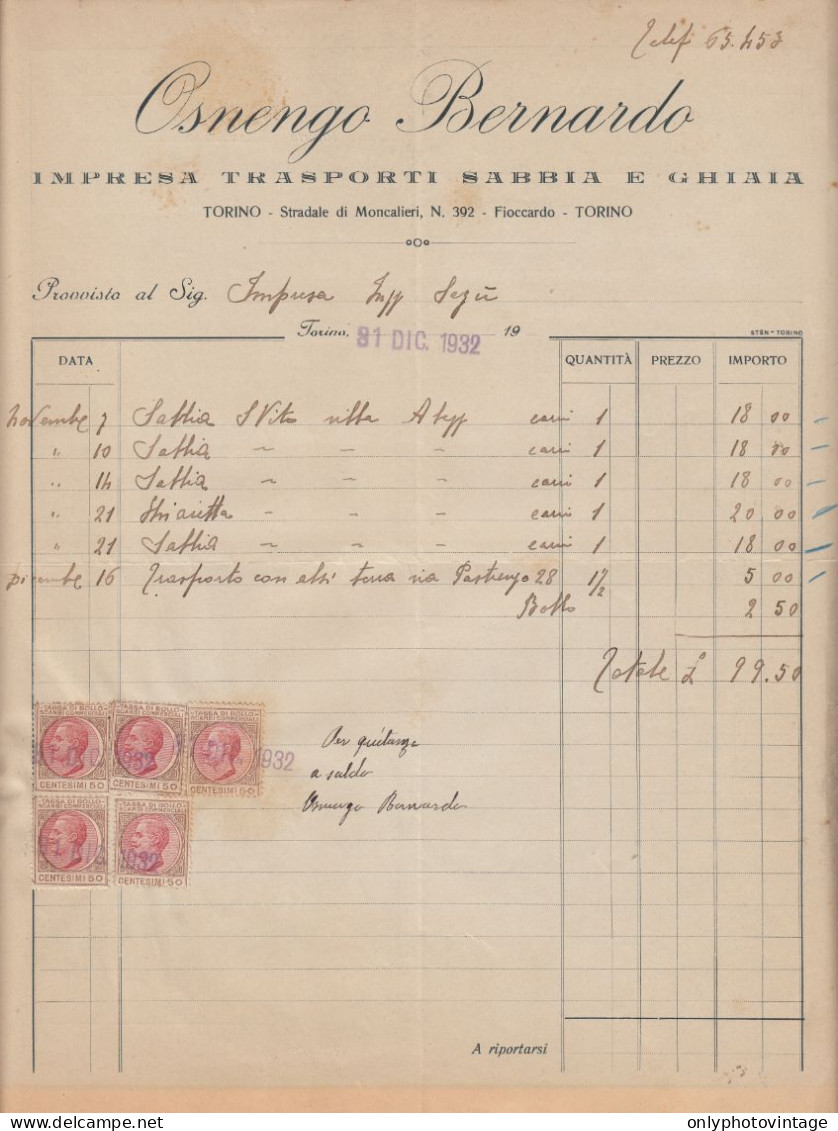 Telef 65.453
Osnengo Bernardo
IMPRESA TRASPORTI SABBIA E GHIAIA
TORINO - Stradale di Moncalieri, N. 392 - Fioccardo - TORINO
Provvista al Sig. Impresa Ingg
Torino, 31 DIC. 1932 19
STEN - TORINO
DATA QUANTITÀ PREZZO IMPORTO
Novembre 7 Sabbia S Vito villa carri 1 18 00
" 10 Sabbia - - - carri 1 18 00
" 14 Sabbia - - - carri 1 18 00
" 21 Ghiaietta - - - carri 1 20 00
" 21 Sabbia - - - carri 1 18 00
Dicembre 16 Trasporto con terra via Pastrengo 28 1/2 5 00
Bollo 2 50
Totale £ 99.50
TASSA DI BOLLO TASSA DI BOLLO TASSA DI BOLLO
SCAMBI COMMERCIALI SCAMBI COMMERCIALI SCAMBI COMMERCIALI
1932 1932
CENTESIMI 50 CENTESIMI 50 CENTESIMI 50
Per quitanza
a saldo
Osnengo Bernardo
TASSA DI BOLLO TASSA DI BOLLO
SCAMBI COMMERCIALI SCAMBI COMMERCIALI
1932
CENTESIMI 50 CENTESIMI 50
A riportarsi
onlyphotovintage